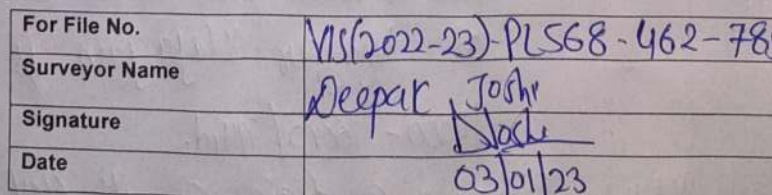 For File No. VIS(2022-23)-PL568-462-78
Surveyor Name Deepak Joshi
Signature DJoshi
Date 03/01/23